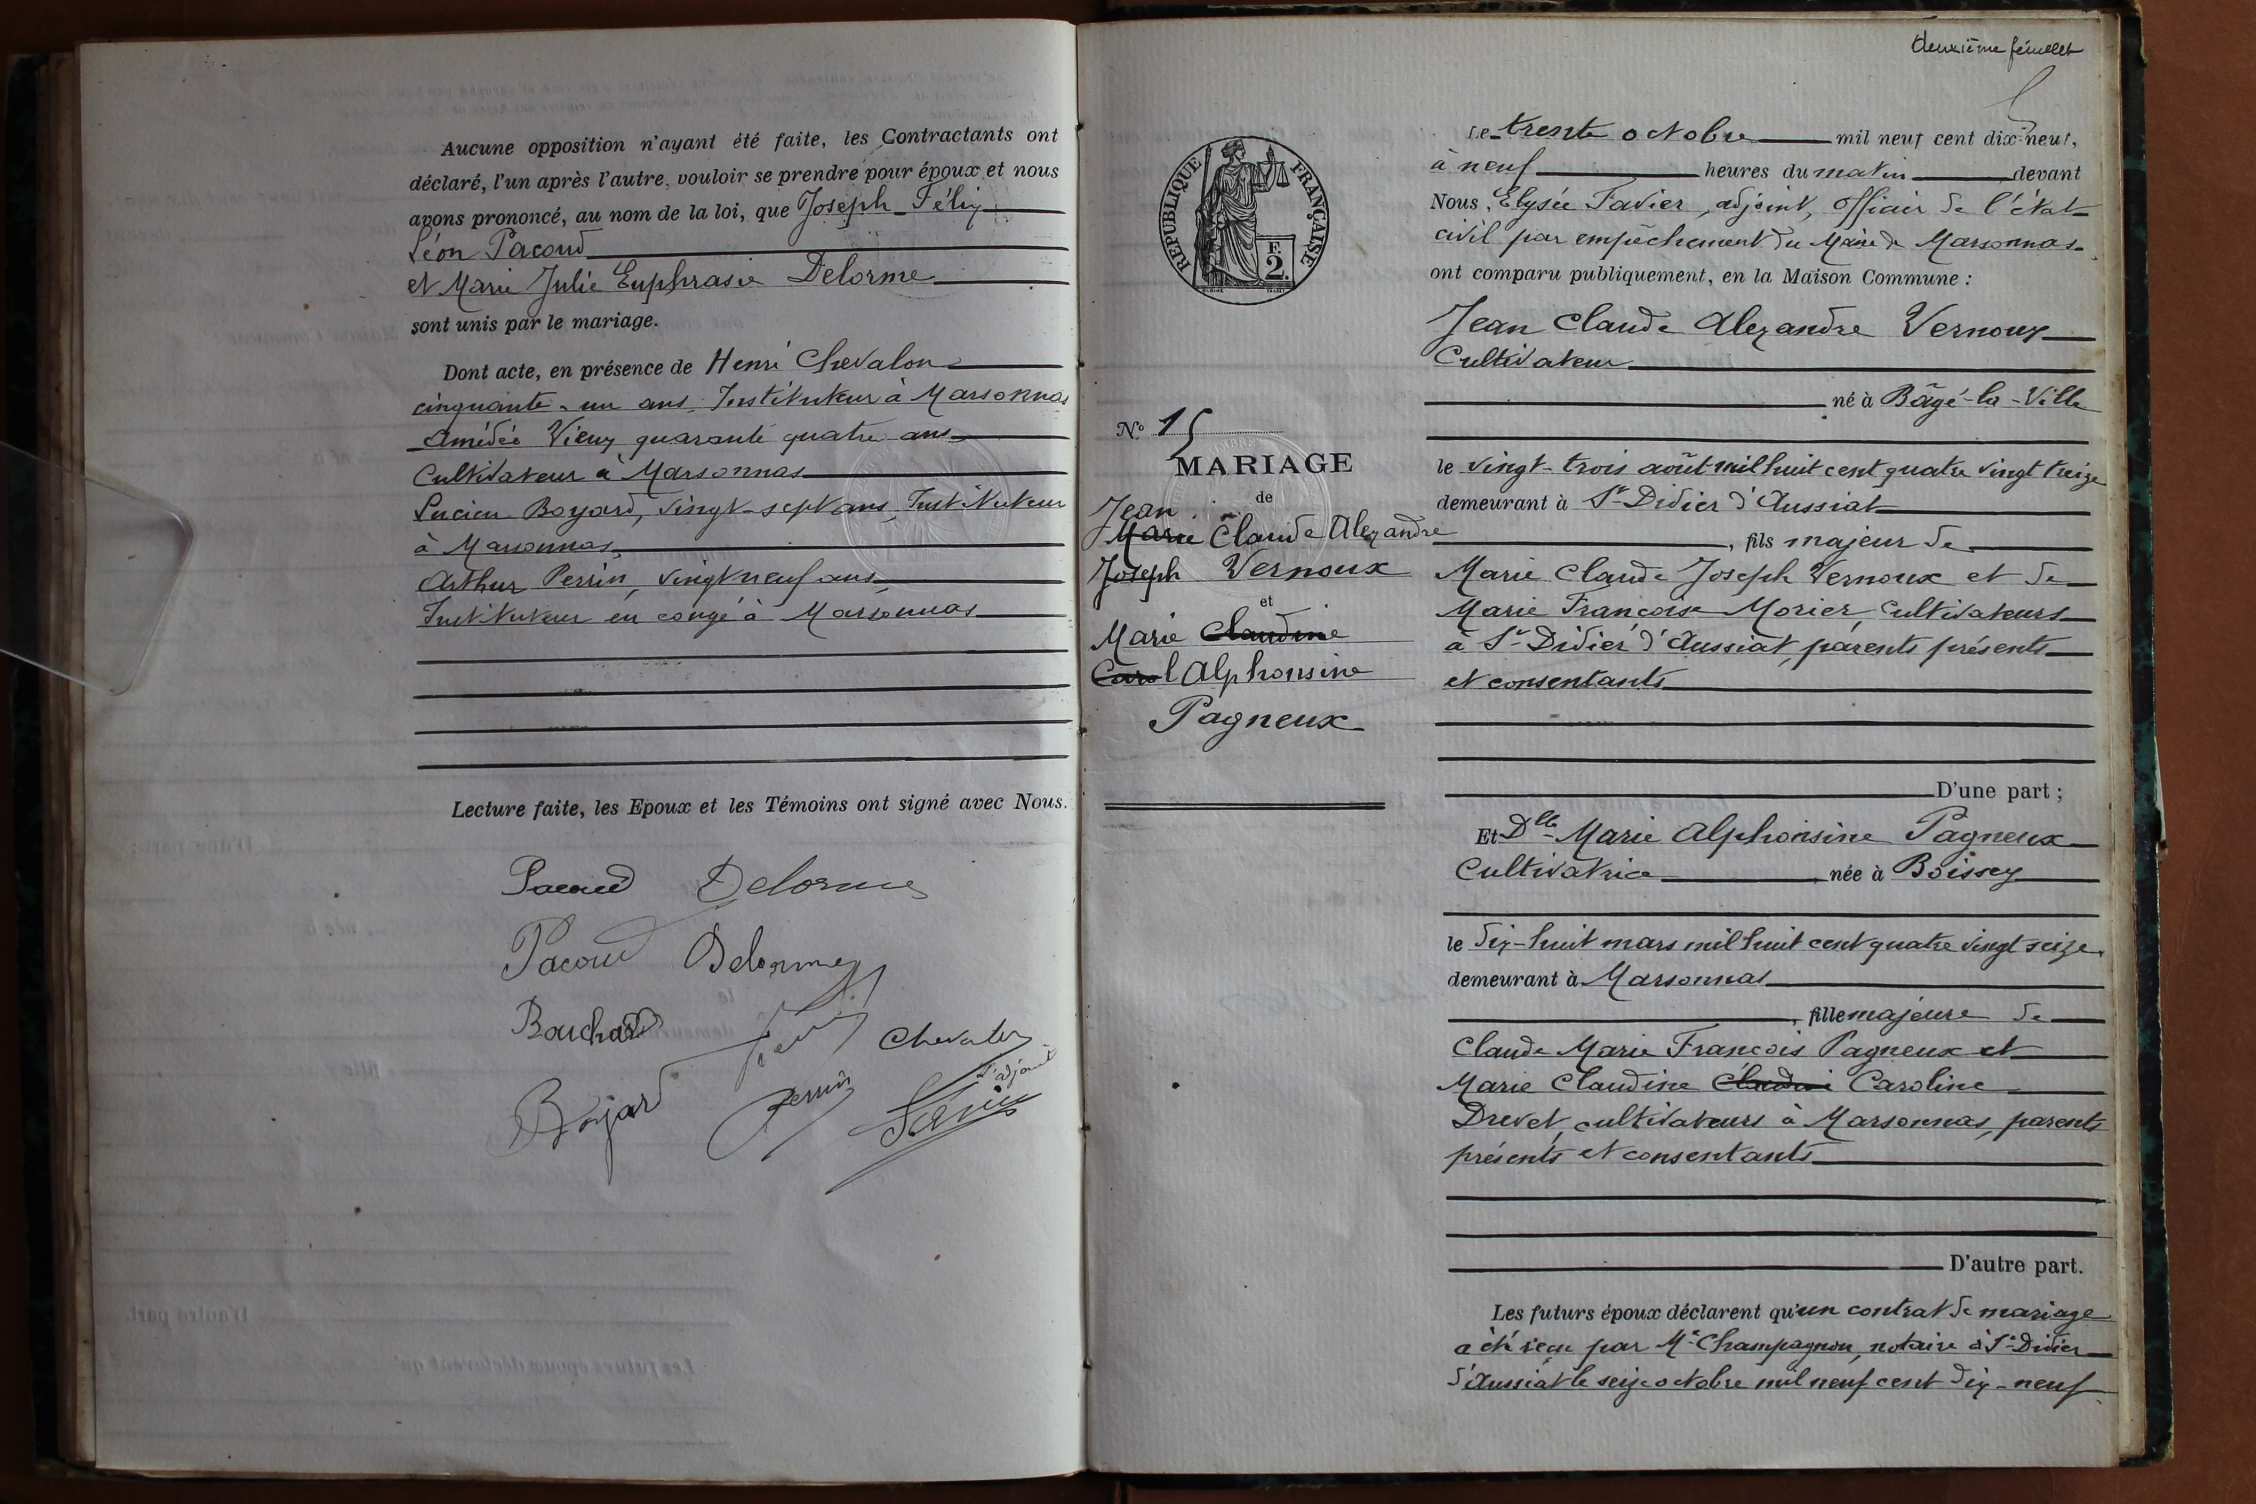 Aucune opposition n'ayant été faite, les Contractants ont
déclaré, l'un après l'autre, vouloir se prendre pour époux et nous
avons prononcé, au nom de la loi, que Joseph Félix
Léon Pacoud
et Marie Julie Euphrasie Delorme
sont unis par le mariage.
Dont acte, en présence de Henri Chevalon
cinquante-un ans, Instituteur à Marsonnas
Amédée Vieux quarante quatre ans
Cultivateur à Marsonnas
Lucien Boyard, vingt-sept ans, Instituteur
à Marsonnas,
Arthur Perrin, vingt neuf ans,
Instituteur en congé à Marsonnas
Lecture faite, les Epoux et les Témoins ont signé avec Nous.
Pacoud Delorme
Pacoud Delorme
Bouchard
Boyard Perrin
L'adjoint
deuxième feuillet
REPUBLIQUE FRANÇAISE
2 F.
Le trente octobre mil neuf cent dix-neuf,
à neuf heures du matin devant
Nous, Elysée Favier, adjoint, officier de l'état
civil par empêchement du Maire de Marsonnas
ont comparu publiquement, en la Maison Commune :
Jean Claude Alexandre Vernoux
Cultivateur
né à Bâgé-la-Ville
le vingt-trois août mil huit cent quatre vingt treize
demeurant à St Didier d'Aussiat
, fils majeur de
Marie Claude Joseph Vernoux et de
Marie Françoise Morier, cultivateurs
à St Didier d'Aussiat, parents présents
et consentants
D'une part ;
Et Dlle Marie Alphonsine Pagneux
Cultivatrice née à Boissey
le dix-huit mars mil huit cent quatre vingt seize
demeurant à Marsonnas
, fille majeure de
Claude Marie François Pagneux et
Marie Claudine Claudine Caroline
Drevet, cultivateurs à Marsonnas, parents
présents et consentants
D'autre part.
Les futurs époux déclarent qu'un contrat de mariage
a été reçu par Me Champagnon, notaire à St Didier
d'Aussiat le seize octobre mil neuf cent dix-neuf
N° 15
MARIAGE
de
Jean
Marie Claude Alexandre
Joseph Vernoux
et
Marie Claudine
Carol Alphonsine
Pagneux